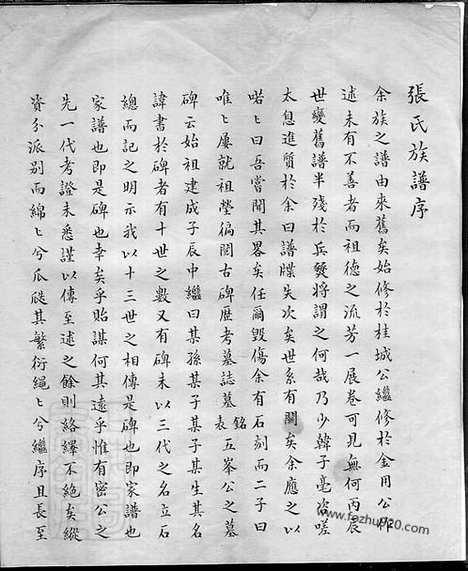 張氏族譜序
余族之譜由來舊矣始修於桂城公繼修於金用公所
述未有不善者而祖德之流芳一展卷可見無何丙辰
世變舊譜半殘於兵燹將謂之何哉乃少韓子毫盜嗟
太息進質於余曰譜牒失次矣世系有闕矣余應之以
喏〻曰吾嘗聞其畧矣任爾毀傷余有石刻而二子曰
唯〻屢就祖塋徧閱古碑歷考墓誌墓銘表五峯公之墓
碑云始祖建成子辰中繼曰其孫其子其子其生其名
諱書於碑者有十世之數又有碑未以三代之名立石
總而記之明示我以十三世之相傳是碑也即家譜也
家譜也即是碑也幸矣乎貽謀何其遠乎惟有密公之
先一代考證未悉謹以傳至述之餘則絡繹不絶矣縱
資分派别而綿〻兮瓜瓞其繁衍繩〻兮繼序且長至
www.fozhu920.com